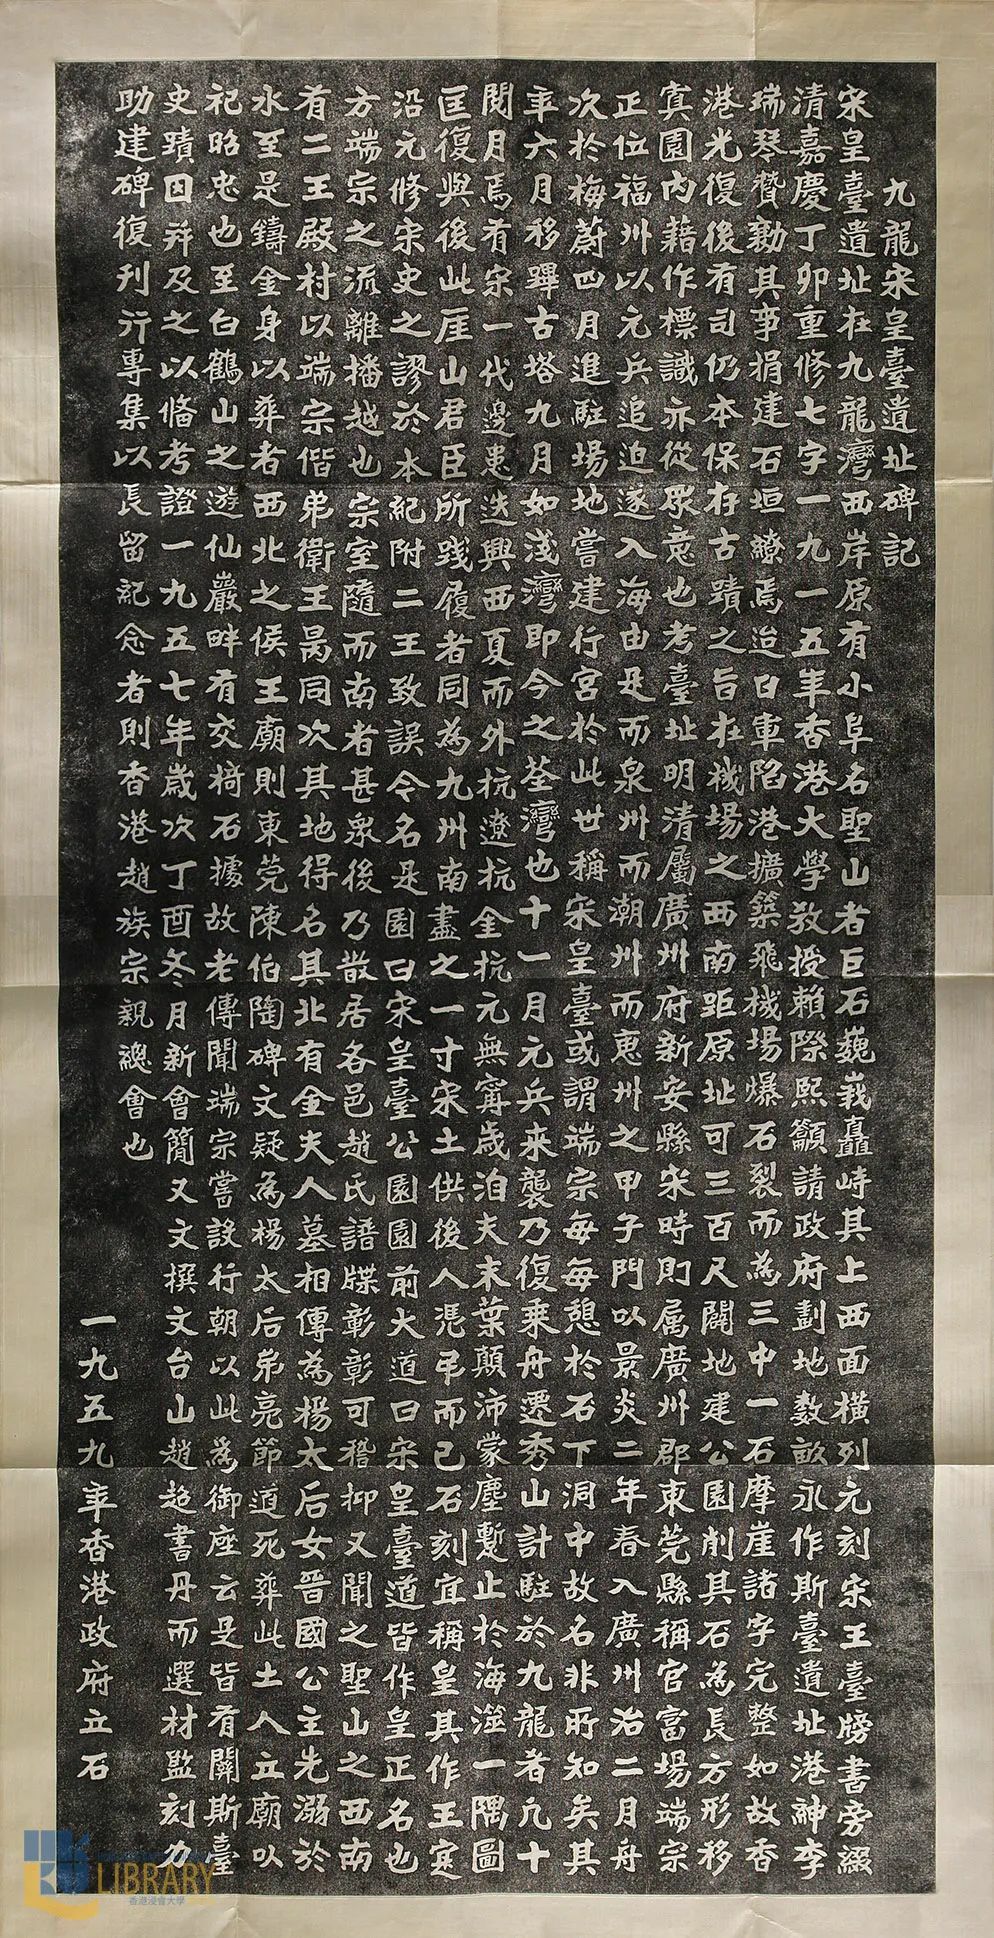 九龍宋皇臺遺址碑記
宋皇臺遺址在九龍灣西岸原有小阜名聖山者巨石巍峩矗峙其上西面橫列元刻宋王臺牓書旁綴
清嘉慶丁卯重修七字一九一五年香港大學教授賴際熙籲請政府劃地數畝永作斯臺遺址港紳李
瑞琴贊勷其事捐建石垣繚焉迨日軍陷港擴築飛機場爆石裂而為三中一石摩崖諸字完整如故香
港光復後有司仍本保存古蹟之旨在機場之西南距原址可三百尺闢地建公園削其石為長方形移
寘園內藉作標識亦從眾意也考臺址明清屬廣州府新安縣宋時則屬廣州郡東莞縣稱官富場端宗
正位福州以元兵追迫遂入海由是而泉州而潮州而惠州之甲子門以景炎二年春入廣州治二月舟
次於梅蔚四月進駐場地嘗建行宮於此世稱宋皇臺或謂端宗每每憩於石下洞中故名非所知矣其
年六月移蹕古塔九月如淺灣即今之荃灣也十一月元兵來襲乃復乘舟遷秀山計駐於九龍者凡十
閱月焉有宋一代邊患迭興西夏而外抗遼抗金抗元無寧歲洎夫末葉顛沛蒙塵暫止於海澨一隅圖
匡復與後此厓山君臣所踐履者同為九州南盡之一寸宋土供後人憑弔而已石刻宜稱皇其作王寔
沿元修宋史之謬於本紀附二王致誤今名是園曰宋皇臺公園園前大道曰宋皇臺道皆作皇正名也
方端宗之流離播越也宗室隨而南者甚眾後乃散居各邑趙氏譜牒彰彰可稽抑又聞之聖山之西南
有二王殿村以端宗偕弟衛王昺同次其地得名其北有金夫人墓相傳為楊太后女晉國公主先溺於
水至是鑄金身以葬者西北之侯王廟則東莞陳伯陶碑文疑為楊太后弟亮節道死葬此土人立廟以
祀昭忠也至白鶴山之遊仙巖畔有交椅石據故老傳聞端宗嘗設行朝以此為御座云是皆有關斯臺
史蹟因并及之以備考證一九五七年歲次丁酉冬月新會簡又文撰文台山趙超書丹而選材監刻力
助建碑復刊行專集以長留紀念者則香港趙族宗親總會也
一九五九年香港政府立石
LIBRARY
香港浸會大學